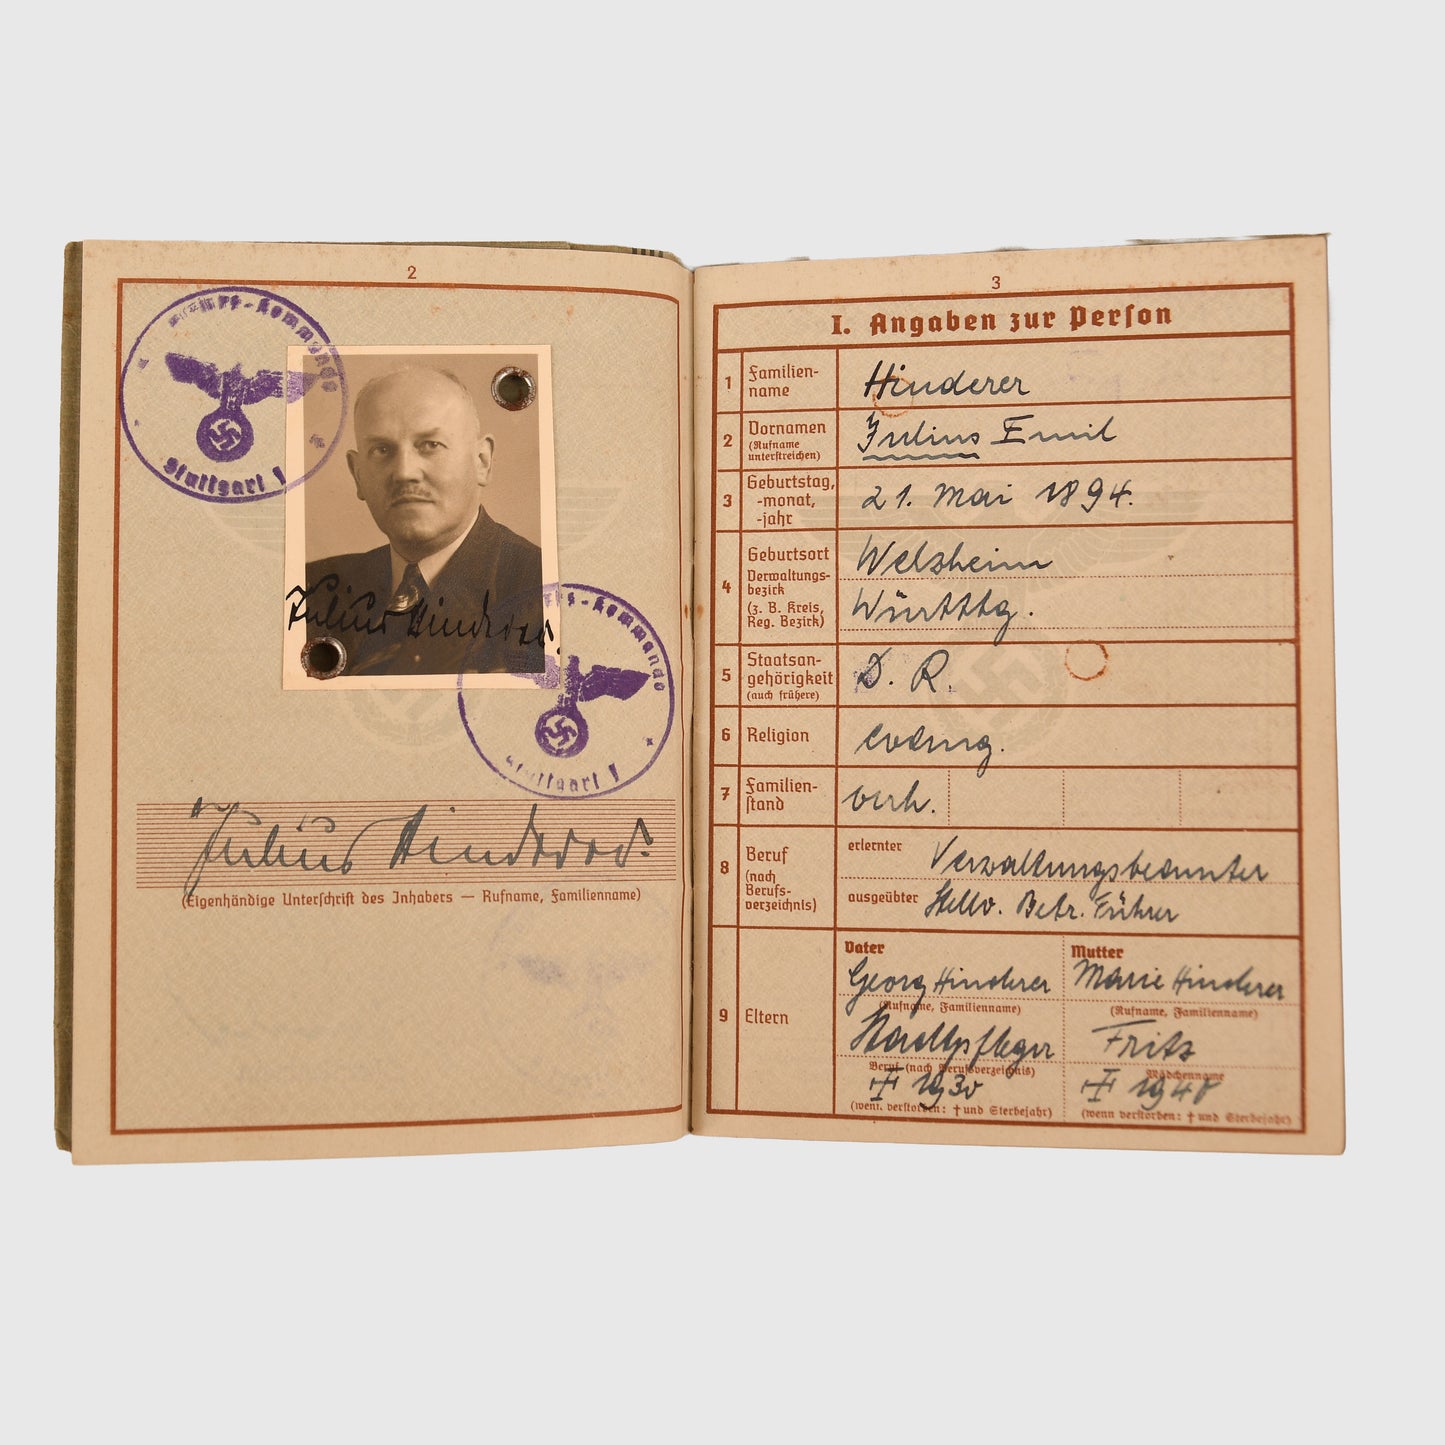 2
Stuttgart I
Julius Hinderer.
Kommando
Stuttgart I
Julius Hinderer.
(Eigenhändige Unterschrift des Inhabers — Rufname, Familienname)
3
I. Angaben zur Person
1 Familien-
name
Hinderer
2 Vornamen
(Rufname
unterstreichen)
Julius Emil
3 Geburtstag,
-monat,
-jahr
21. Mai 1894.
4 Geburtsort
Verwaltungs-
bezirk
(z. B. Kreis,
Reg. Bezirk)
Welzheim
Württbg.
5 Staatsan-
gehörigkeit
(auch frühere)
D. R.
6 Religion
evang.
7 Familien-
stand
verh.
8 Beruf
(nach
Berufs-
verzeichnis)
erlernter Verwaltungsbeamter
ausgeübter Stellv. Betr. Führer
9 Eltern
Vater
Georg Hinderer
(Rufname, Familienname)
Stadtpfleger
Beruf (nach Berufsverzeichnis)
1930
(wenn verstorben: † und Sterbejahr)
Mutter
Marie Hinderer
(Rufname, Familienname)
Fritz
Mädchenname
1940
(wenn verstorben: † und Sterbejahr)